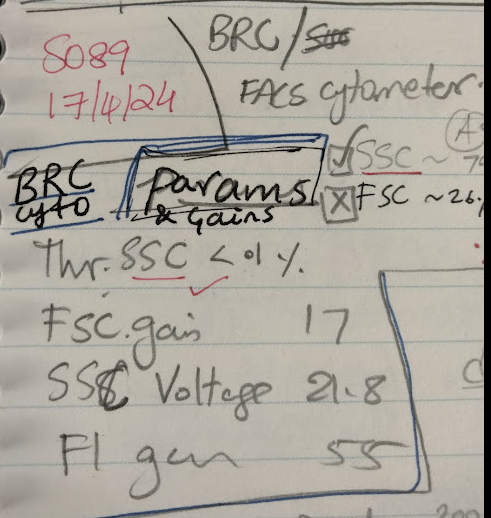 S089
17/4/24
BRC/
FACS cytometer.
BRC
cyto
Params
& Gains
☑ SSC ~ 7
☒ FSC ~26.
Thr. SSC < 01 %
FSC.gain 17
SSC Voltage 21.8
Fl gain 55